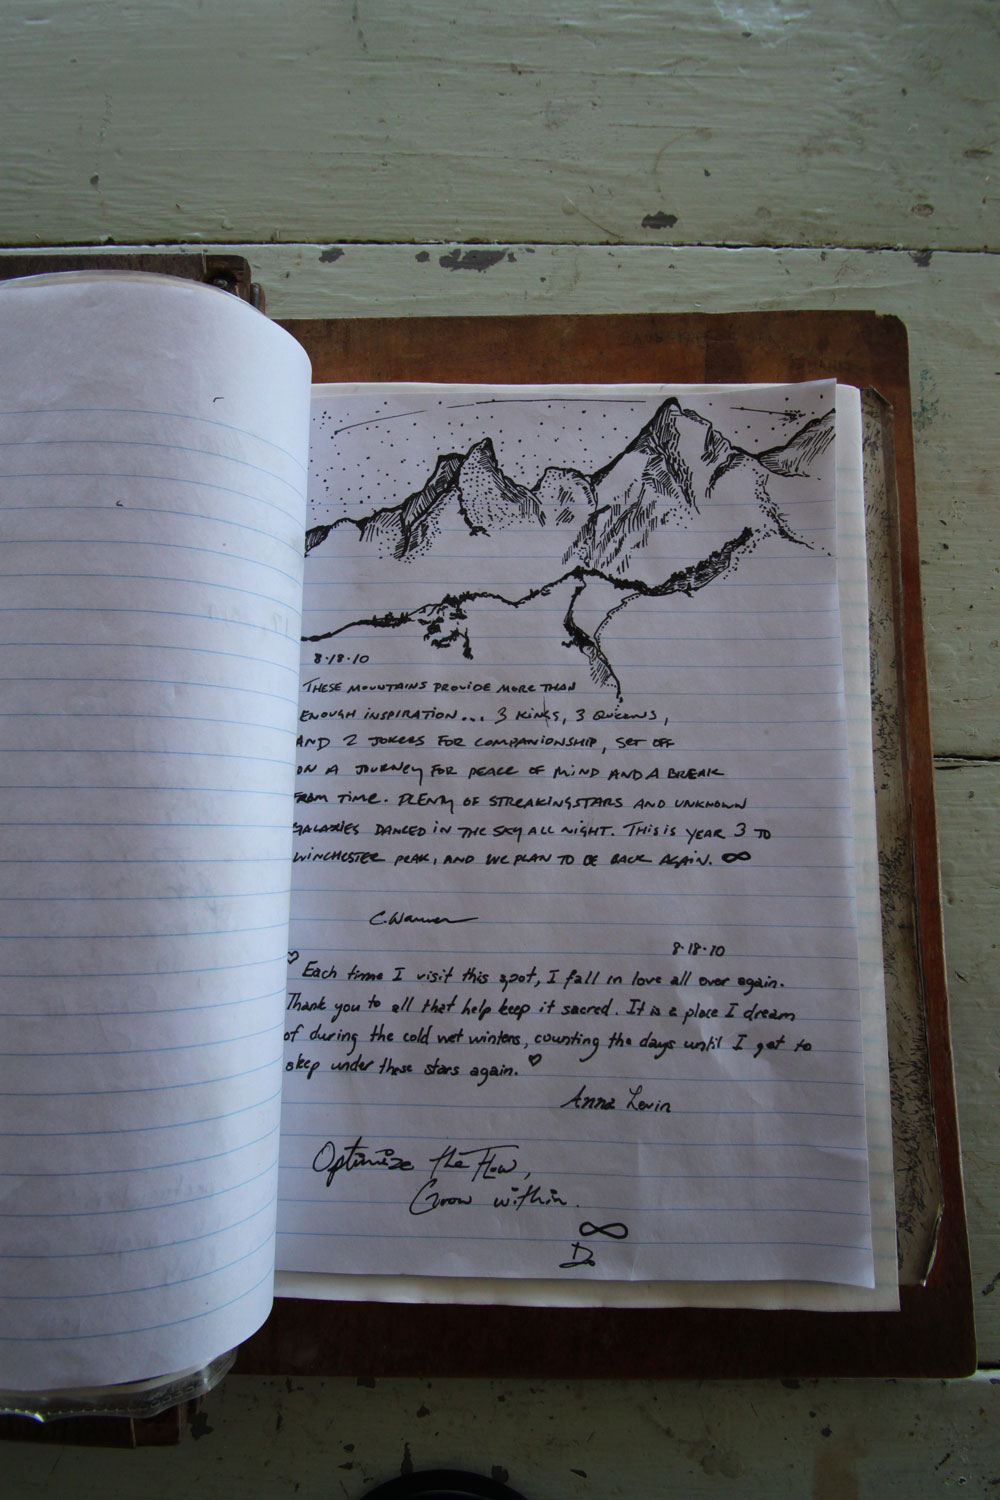 8·18·10
THESE MOUNTAINS PROVIDE MORE THAN
ENOUGH INSPIRATION... 3 KINGS, 3 QUEENS,
AND 2 JOKERS FOR COMPANIONSHIP, SET OFF
ON A JOURNEY FOR PEACE OF MIND AND A BREAK
FROM TIME. PLENTY OF STREAKING STARS AND UNKNOWN
GALAXIES DANCED IN THE SKY ALL NIGHT. THIS IS YEAR 3 TO
WINCHESTER PEAK, AND WE PLAN TO BE BACK AGAIN. ∞
C. Warren
8·18·10
♡ Each time I visit this spot, I fall in love all over again.
Thank you to all that help keep it sacred. It is a place I dream
of during the cold wet winters, counting the days until I get to
sleep under these stars again. ♡
Anna Levin
Optimize the Flow,
Grow within.
∞
D